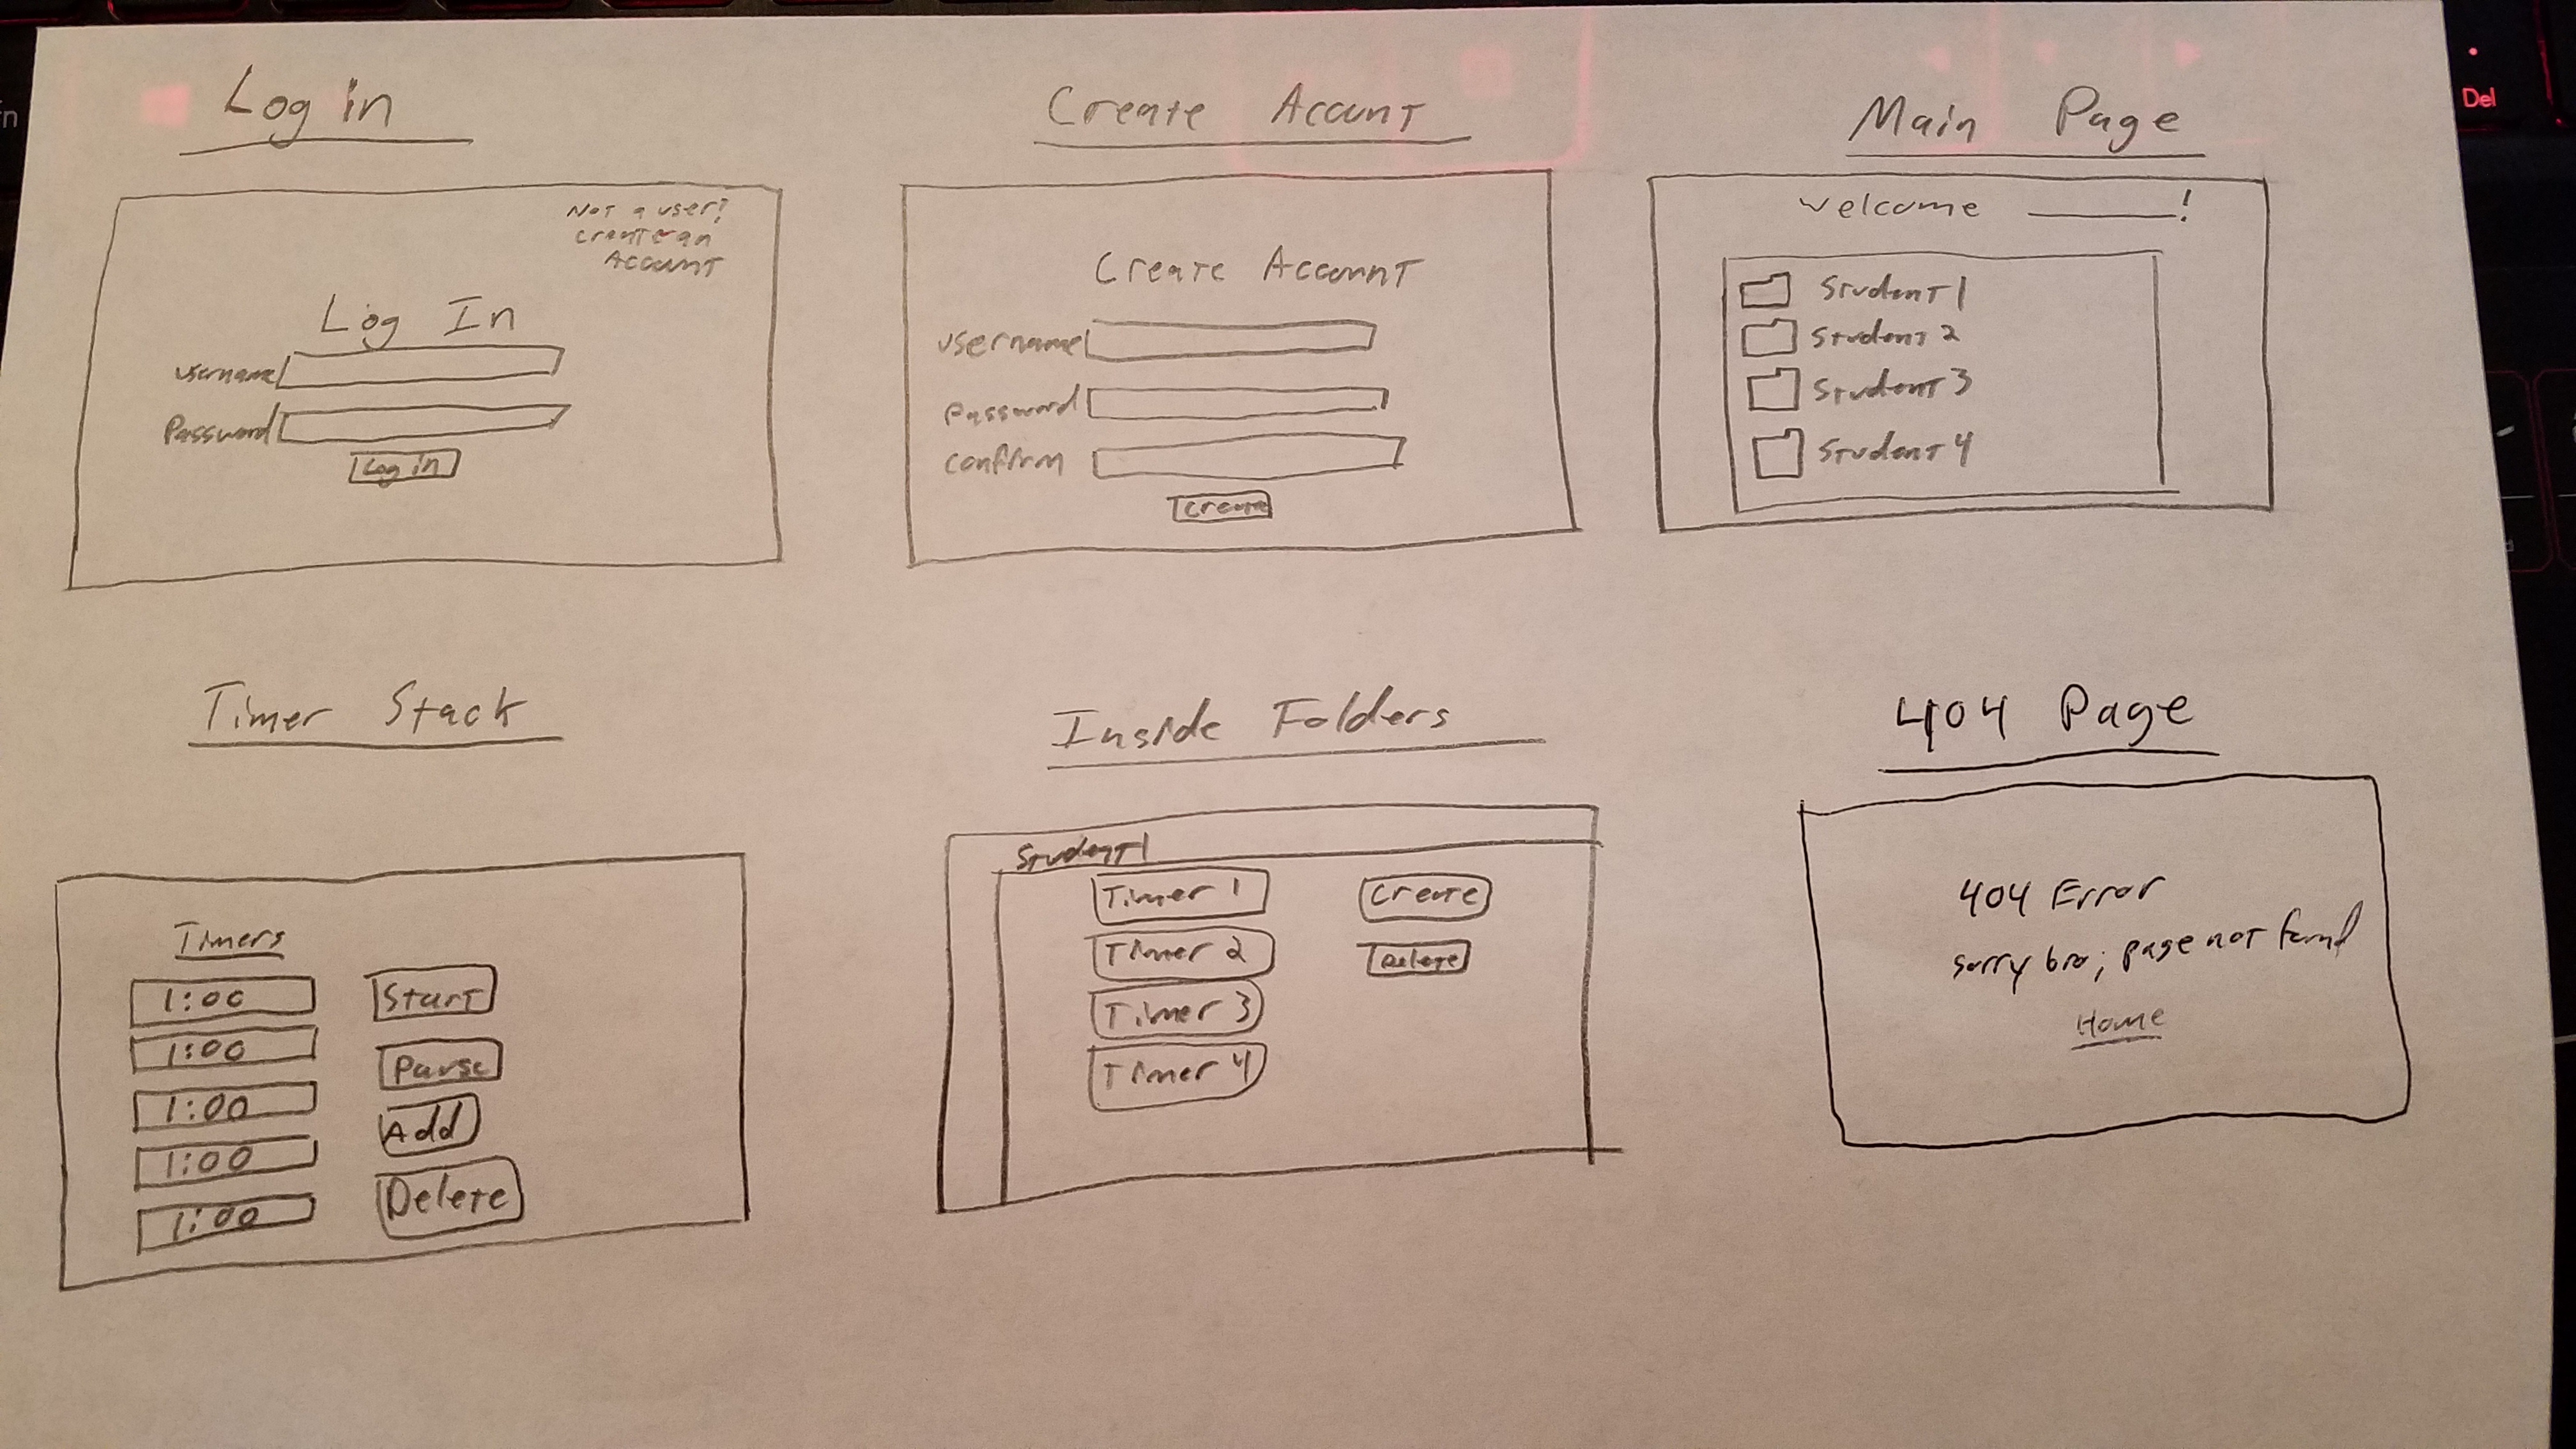 Log in
Not a user?
Create an
Account
Log In
username
Password
Log in
Create Account
Create Account
username
password
confirm
Create
Main Page
Welcome ______!
Student 1
Student 2
Student 3
Student 4
Timer Stack
Timers
1:00
1:00
1:00
1:00
1:00
Start
Pause
Add
Delete
Inside Folders
Student 1
Timer 1
Timer 2
Timer 3
Timer 4
Create
Delete
404 Page
404 Error
sorry bro; page not found
Home
Del